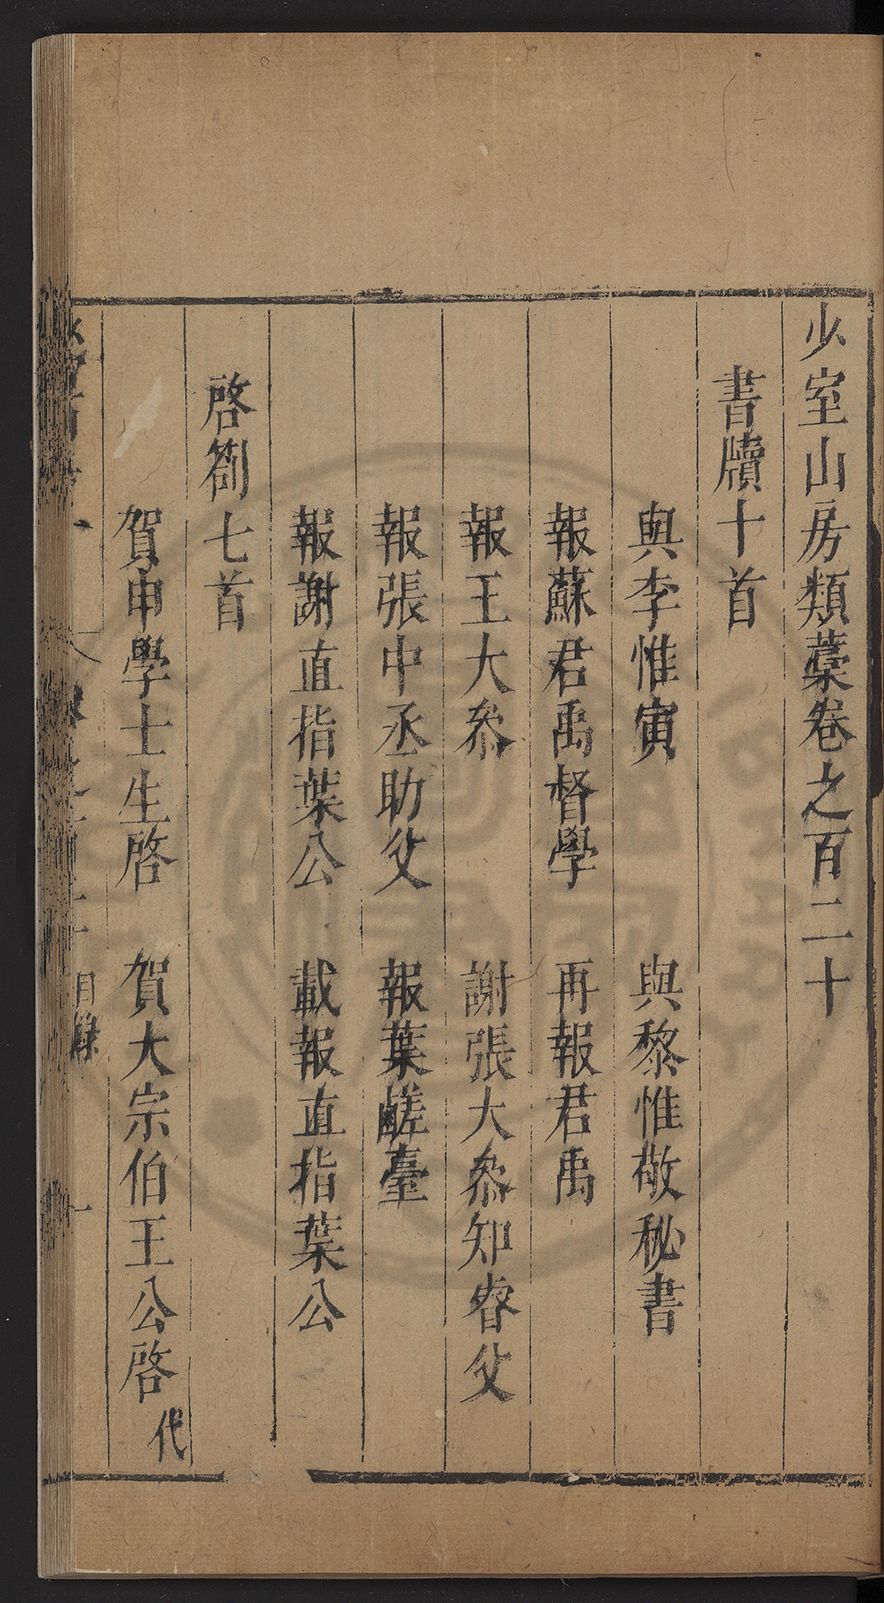 少室山房類藁卷之百二十
書牘十首
與李惟寅　與黎惟敬秘書
報蘇君禹督學　再報君禹
報王大叅　謝張大叅知睿父
報張中丞助父　報葉鹺臺
報謝直指葉公　載報直指葉公
啓劄七首
賀申學士生啓　賀大宗伯王公啓代
目錄　一